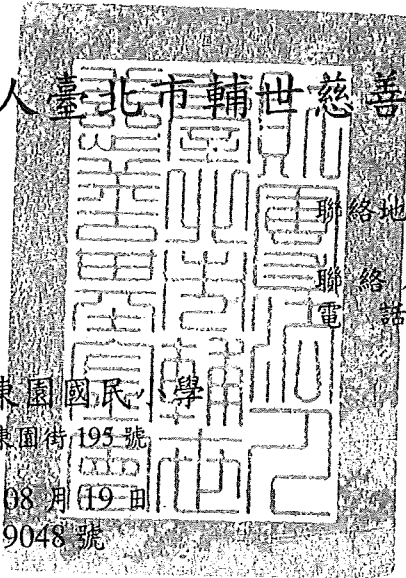 人臺北市輔世慈善
聯絡地
聯絡
電話
東園國民小學
東園街195號
08月19日
9048號
財團法人
臺北市輔世